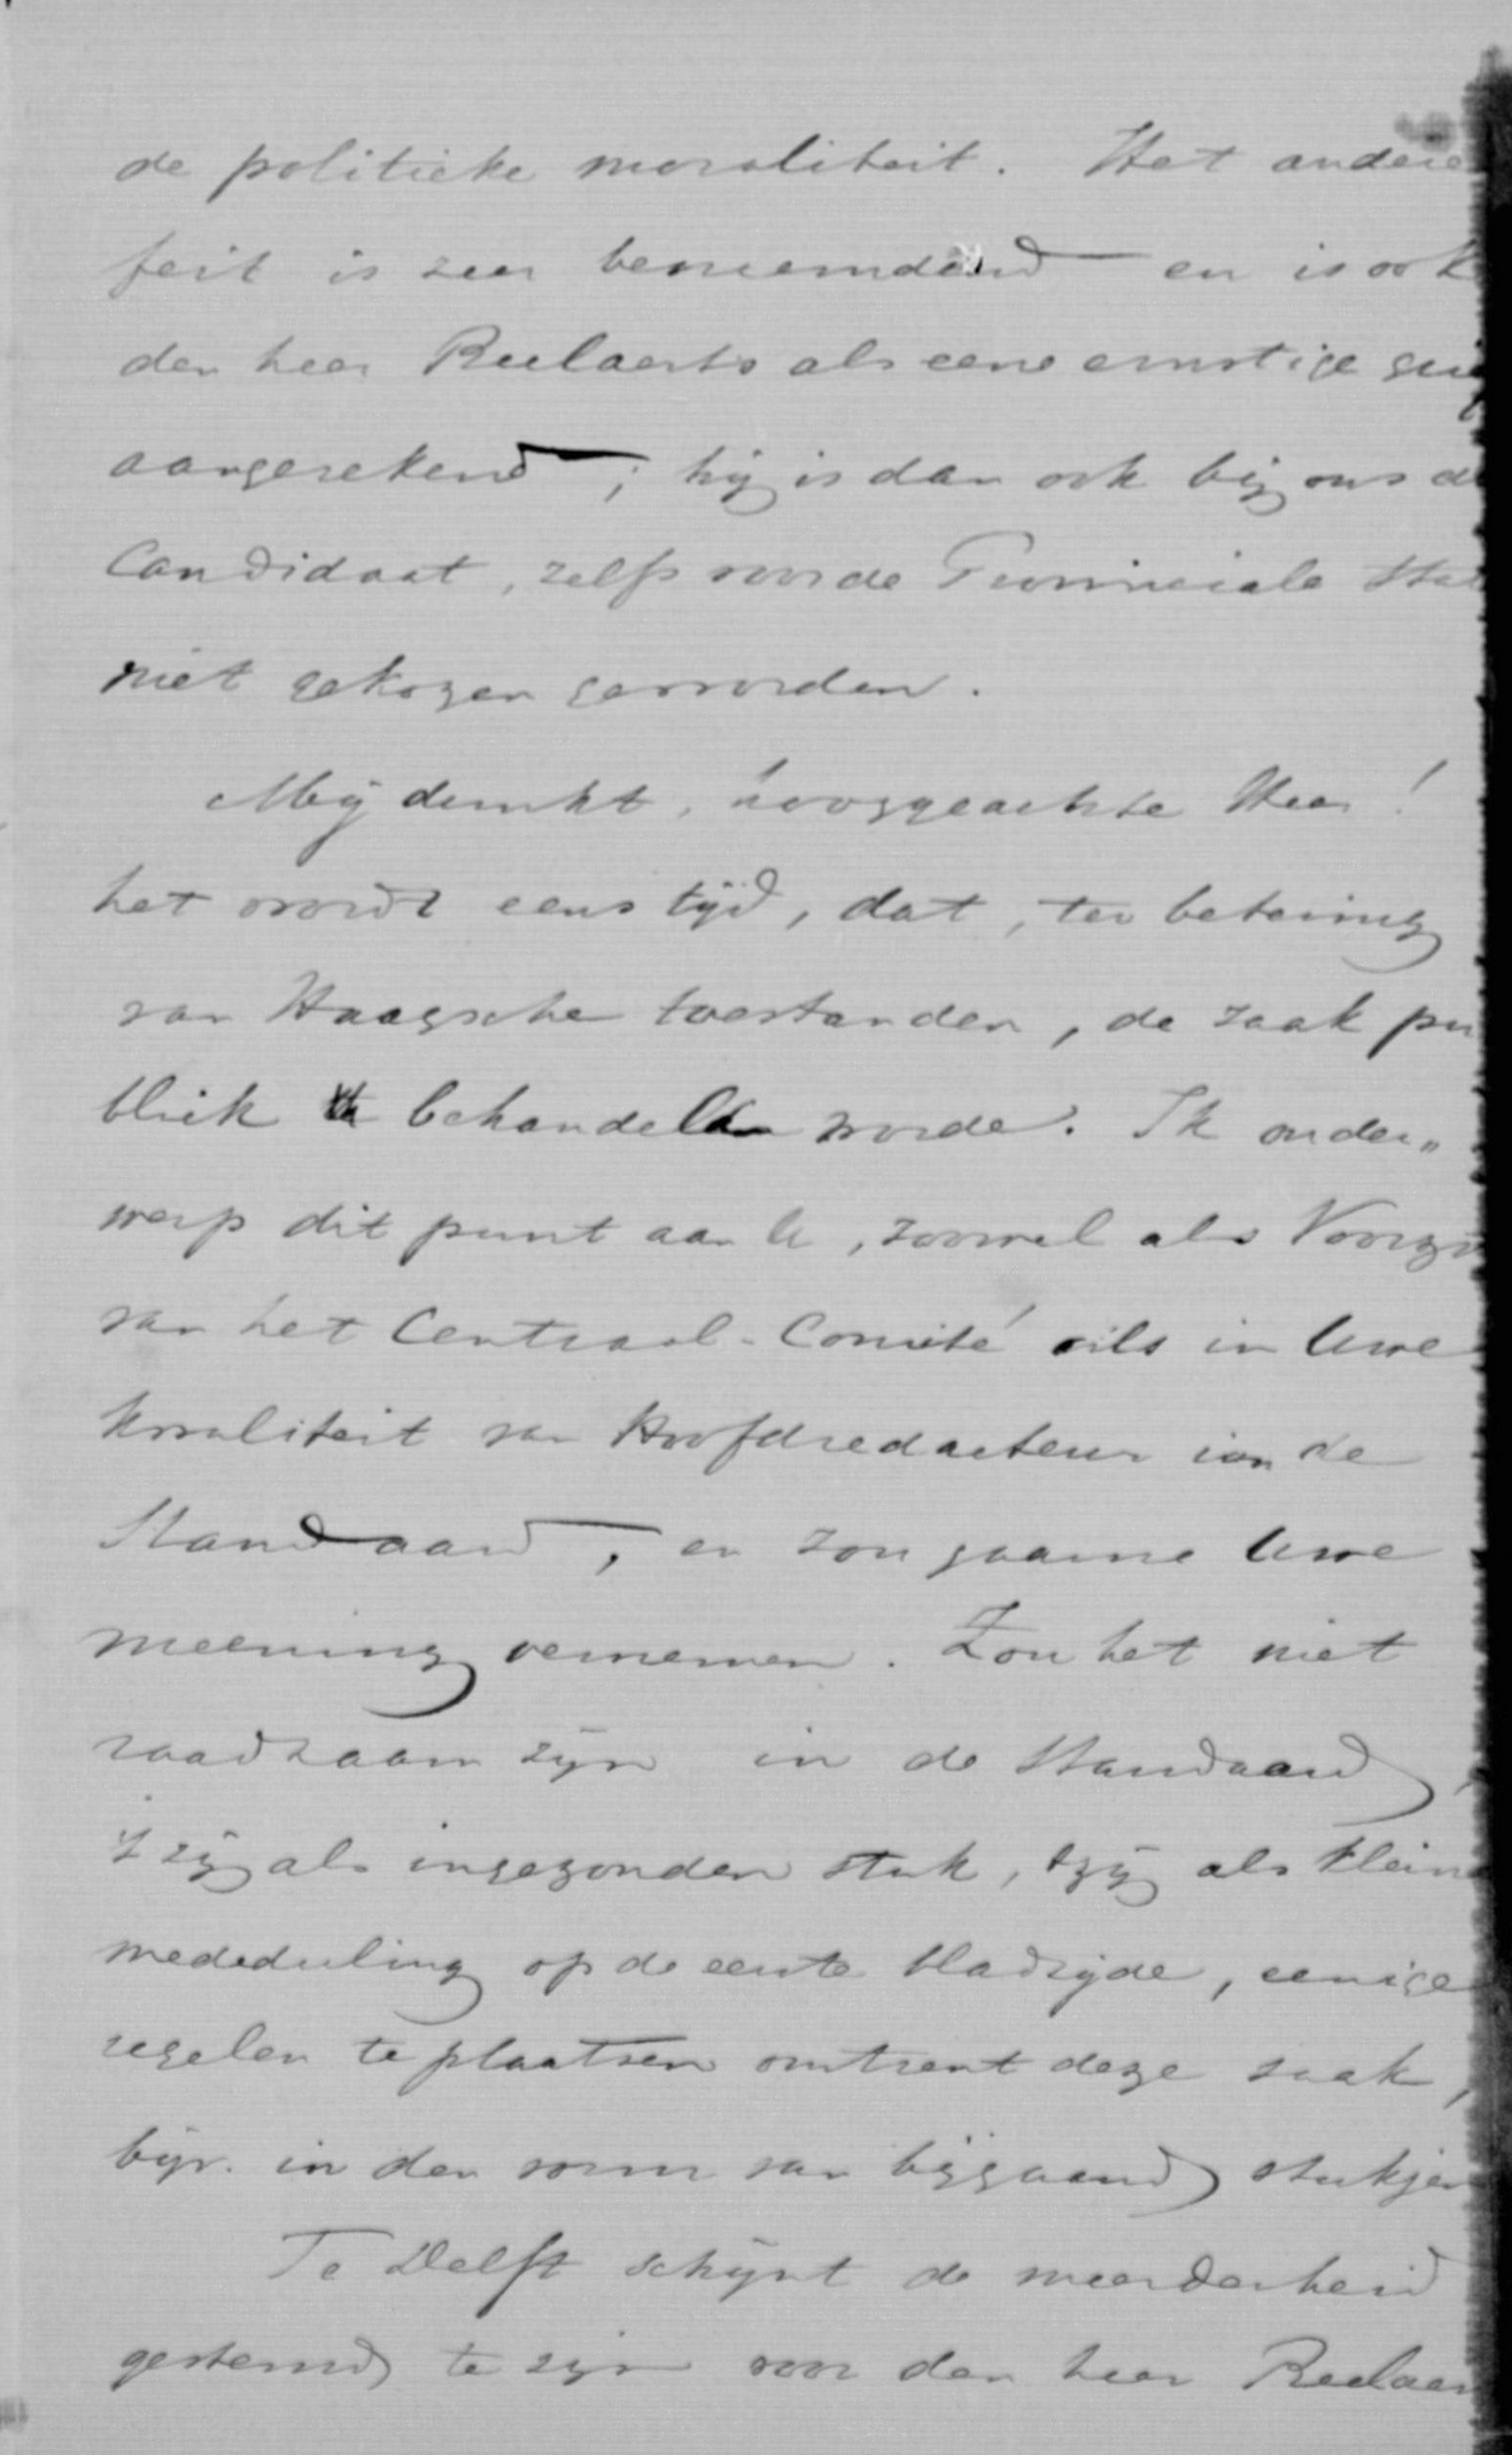 de politieke moraliteit. Het andere
feit is zeer bevreemdend en is ook
den heer Beelaerts als eene ernstige
aangerekend; hij is dan ook bij ons
Candidaat, zelfs voor de Provinciale
niet gekozen geworden.
Mij dunkt, hooggeachte Heer!
het wordt eens tijd, dat, ter betering
van Haagsche toestanden, de zaak pu
bliek behandeld worde. Ik onder„
werp dit punt aan U, zoowel als
van het Centraal-Comité als in Uwe
kwaliteit van Hoofdredacteur van de
Standaard, en zou gaarne Uwe
meening vernemen. Zou het niet
raadzaam zijn in de Standaard,
't zij als ingezonden stuk, tzij als kleine
mededeeling op de eerste bladzijde, eenige
regelen te plaatsen omtrent deze zaak,
bijv. in den vorm van bijgaand stukje
Te Delft schijnt de meerderheid
gestemd te zijn voor den heer Beelaer